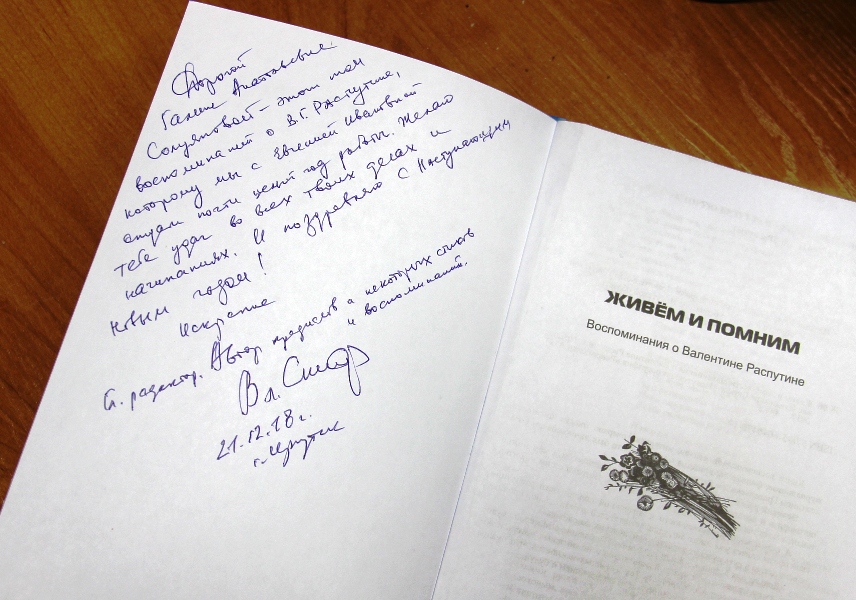 Дорогой
Галине Анатольевне
Солуяновой – этот том
воспоминаний о В.Г. Распутине,
которому мы с Евгенией Ивановной
отдали почти целый год работы. Желаю
тебе удач во всех твоих делах и
начинаниях. И поздравляю с Наступающим
Новым годом!
Искренне
Автор предислов. и некоторых статей
и воспоминаний.
Вл. Скиф
21.12.18 г.
г. Иркутск
ЖИВЁМ И ПОМНИМ
Воспоминания о Валентине Распутине